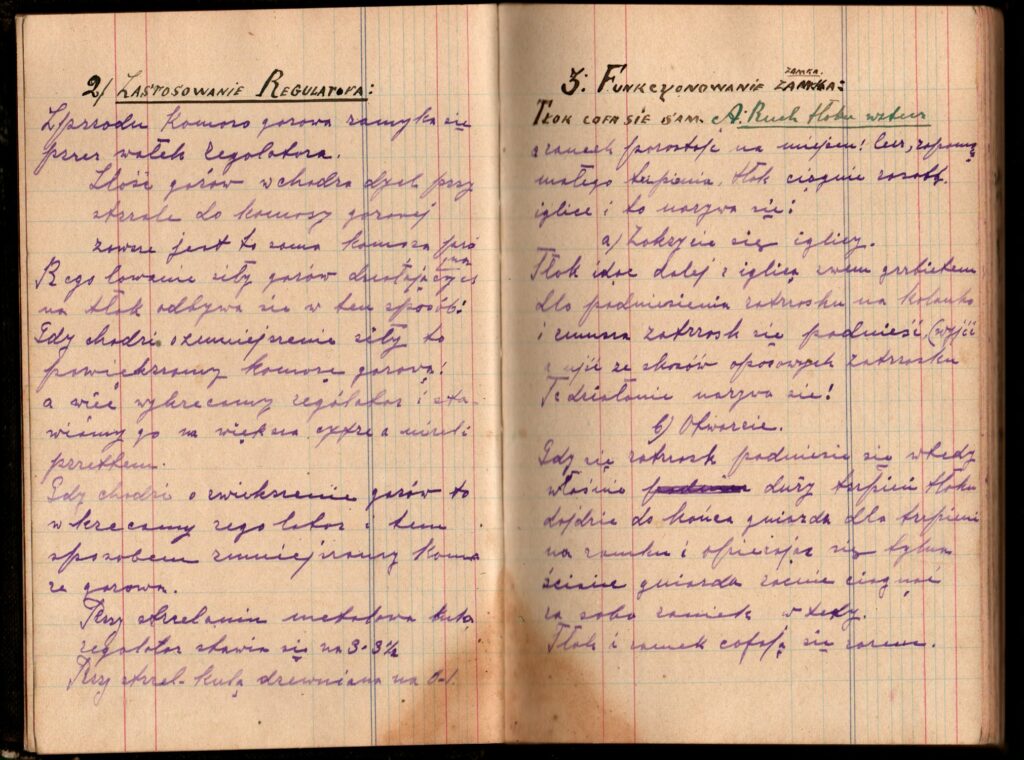 2/ Zastosowanie Regulatora:
Zprzodu Komoro gorowa zamyka się
przez wałek regolatora.
Ilość gazów wchodzą dych przy
strzale do komory gazowej
zawsze jest to sama komora
Regolowanie siły gazów działający cs
na tłok odbywa się w ten sposób:
Gdy chodzi o zmniejszenie siły to
powiększamy komorę gazową:
a więc wykrecamy rególator i sta-
wiamy go na większa cyfrę a
przedtem.
Gdy chodzi o zwiekszenie gazów to
wkrecamy regolator i tem
sposobem zmniejszamy komo
re gazowa.
Przy strzelaniu metalowa kulą
regolator stawia się na 3-3½
Przy strzel-kulą drewniana na 0-1.
3: Funkcyonowanie Zamka:
zamka.
Tłok cofa sie sam. A: Ruch tłoku wstecz
zamek pozostaje na miejscu! lecz, zapomocą
małego trzpienia, tłok ciągnie zasobą
iglice i to nazywa się:
a) Zakrycie się iglicy.
Tłok idąc dalej z iglicą swem grzbietem
dlo podniesienia zatrzasku na kolanko
i zmusza zatrzask się podnieść (wyjść
z ze skosów oporowych zatrzasku
To działanie nazywa sie!
b) Otwarcie.
Gdy się zatrzask podniesie się wtedy
właśnie duży trzpień tłoku
dojdzie do końca gniazda dla trzpieni
na zamku i opierając się tylną
ściane gniazda zacznie ciagnąć
za soba zamek wtedy.
Tłok i zamek cofają się razem.